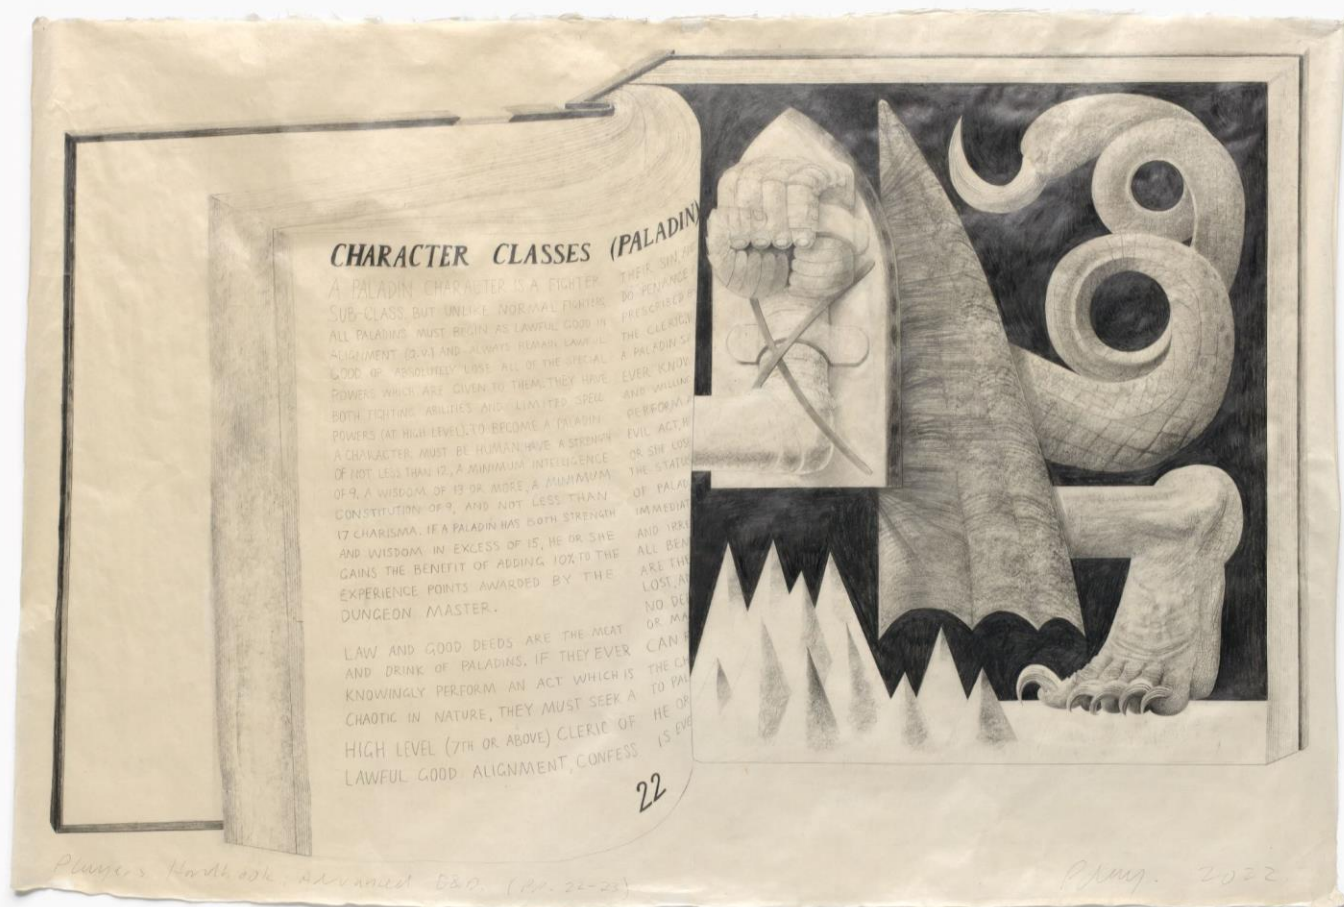 CHARACTER CLASSES (PALADIN)
A PALADIN CHARACTER IS A FIGHTER
SUB-CLASS, BUT UNLIKE NORMAL FIGHTERS
ALL PALADINS MUST BEGIN AS LAWFUL GOOD IN
ALIGNMENT (Q.V.) AND ALWAYS REMAIN
GOOD OR ABSOLUTELY LOSE ALL OF THE SPECIAL
POWERS WHICH ARE GIVEN TO THEM. THEY HAVE
BOTH FIGHTING ABILITIES AND LIMITED SPELL
POWERS (AT HIGH LEVELS). TO BECOME A PALADIN
A CHARACTER MUST BE HUMAN, HAVE A STRENGTH
OF NOT LESS THAN 12, A MINIMUM INTELLIGENCE
OF 9, A WISDOM OF 13 OR MORE, A MINIMUM
CONSTITUTION OF 9, AND NOT LESS THAN
17 CHARISMA. IF A PALADIN HAS BOTH STRENGTH
AND WISDOM IN EXCESS OF 15, HE OR SHE
GAINS THE BENEFIT OF ADDING 10% TO THE
EXPERIENCE POINTS AWARDED BY THE
DUNGEON MASTER.
LAW AND GOOD DEEDS ARE THE MEAT
AND DRINK OF PALADINS. IF THEY EVER
KNOWINGLY PERFORM AN ACT WHICH IS
CHAOTIC IN NATURE, THEY MUST SEEK A
HIGH LEVEL (7TH OR ABOVE) CLERIC OF
LAWFUL GOOD ALIGNMENT, CONFESS
THEIR SIN,
DO PENANCE
PRESCRIBED
THE CLERIC.
A PALADIN
EVER KNOW
AND WILLIN
PERFORM
EVIL ACT, H
OR SHE LOS
THE STATUS
OF PALAD
IMMEDIAT
AND IRRE
ALL BEN
ARE THE
LOST, A
NO DE
OR MA
CAN
THE CH
TO PAL
HE OR
IS EVE
22
Players Handbook: Advanced D&D. (Pp. 22-23)
2022